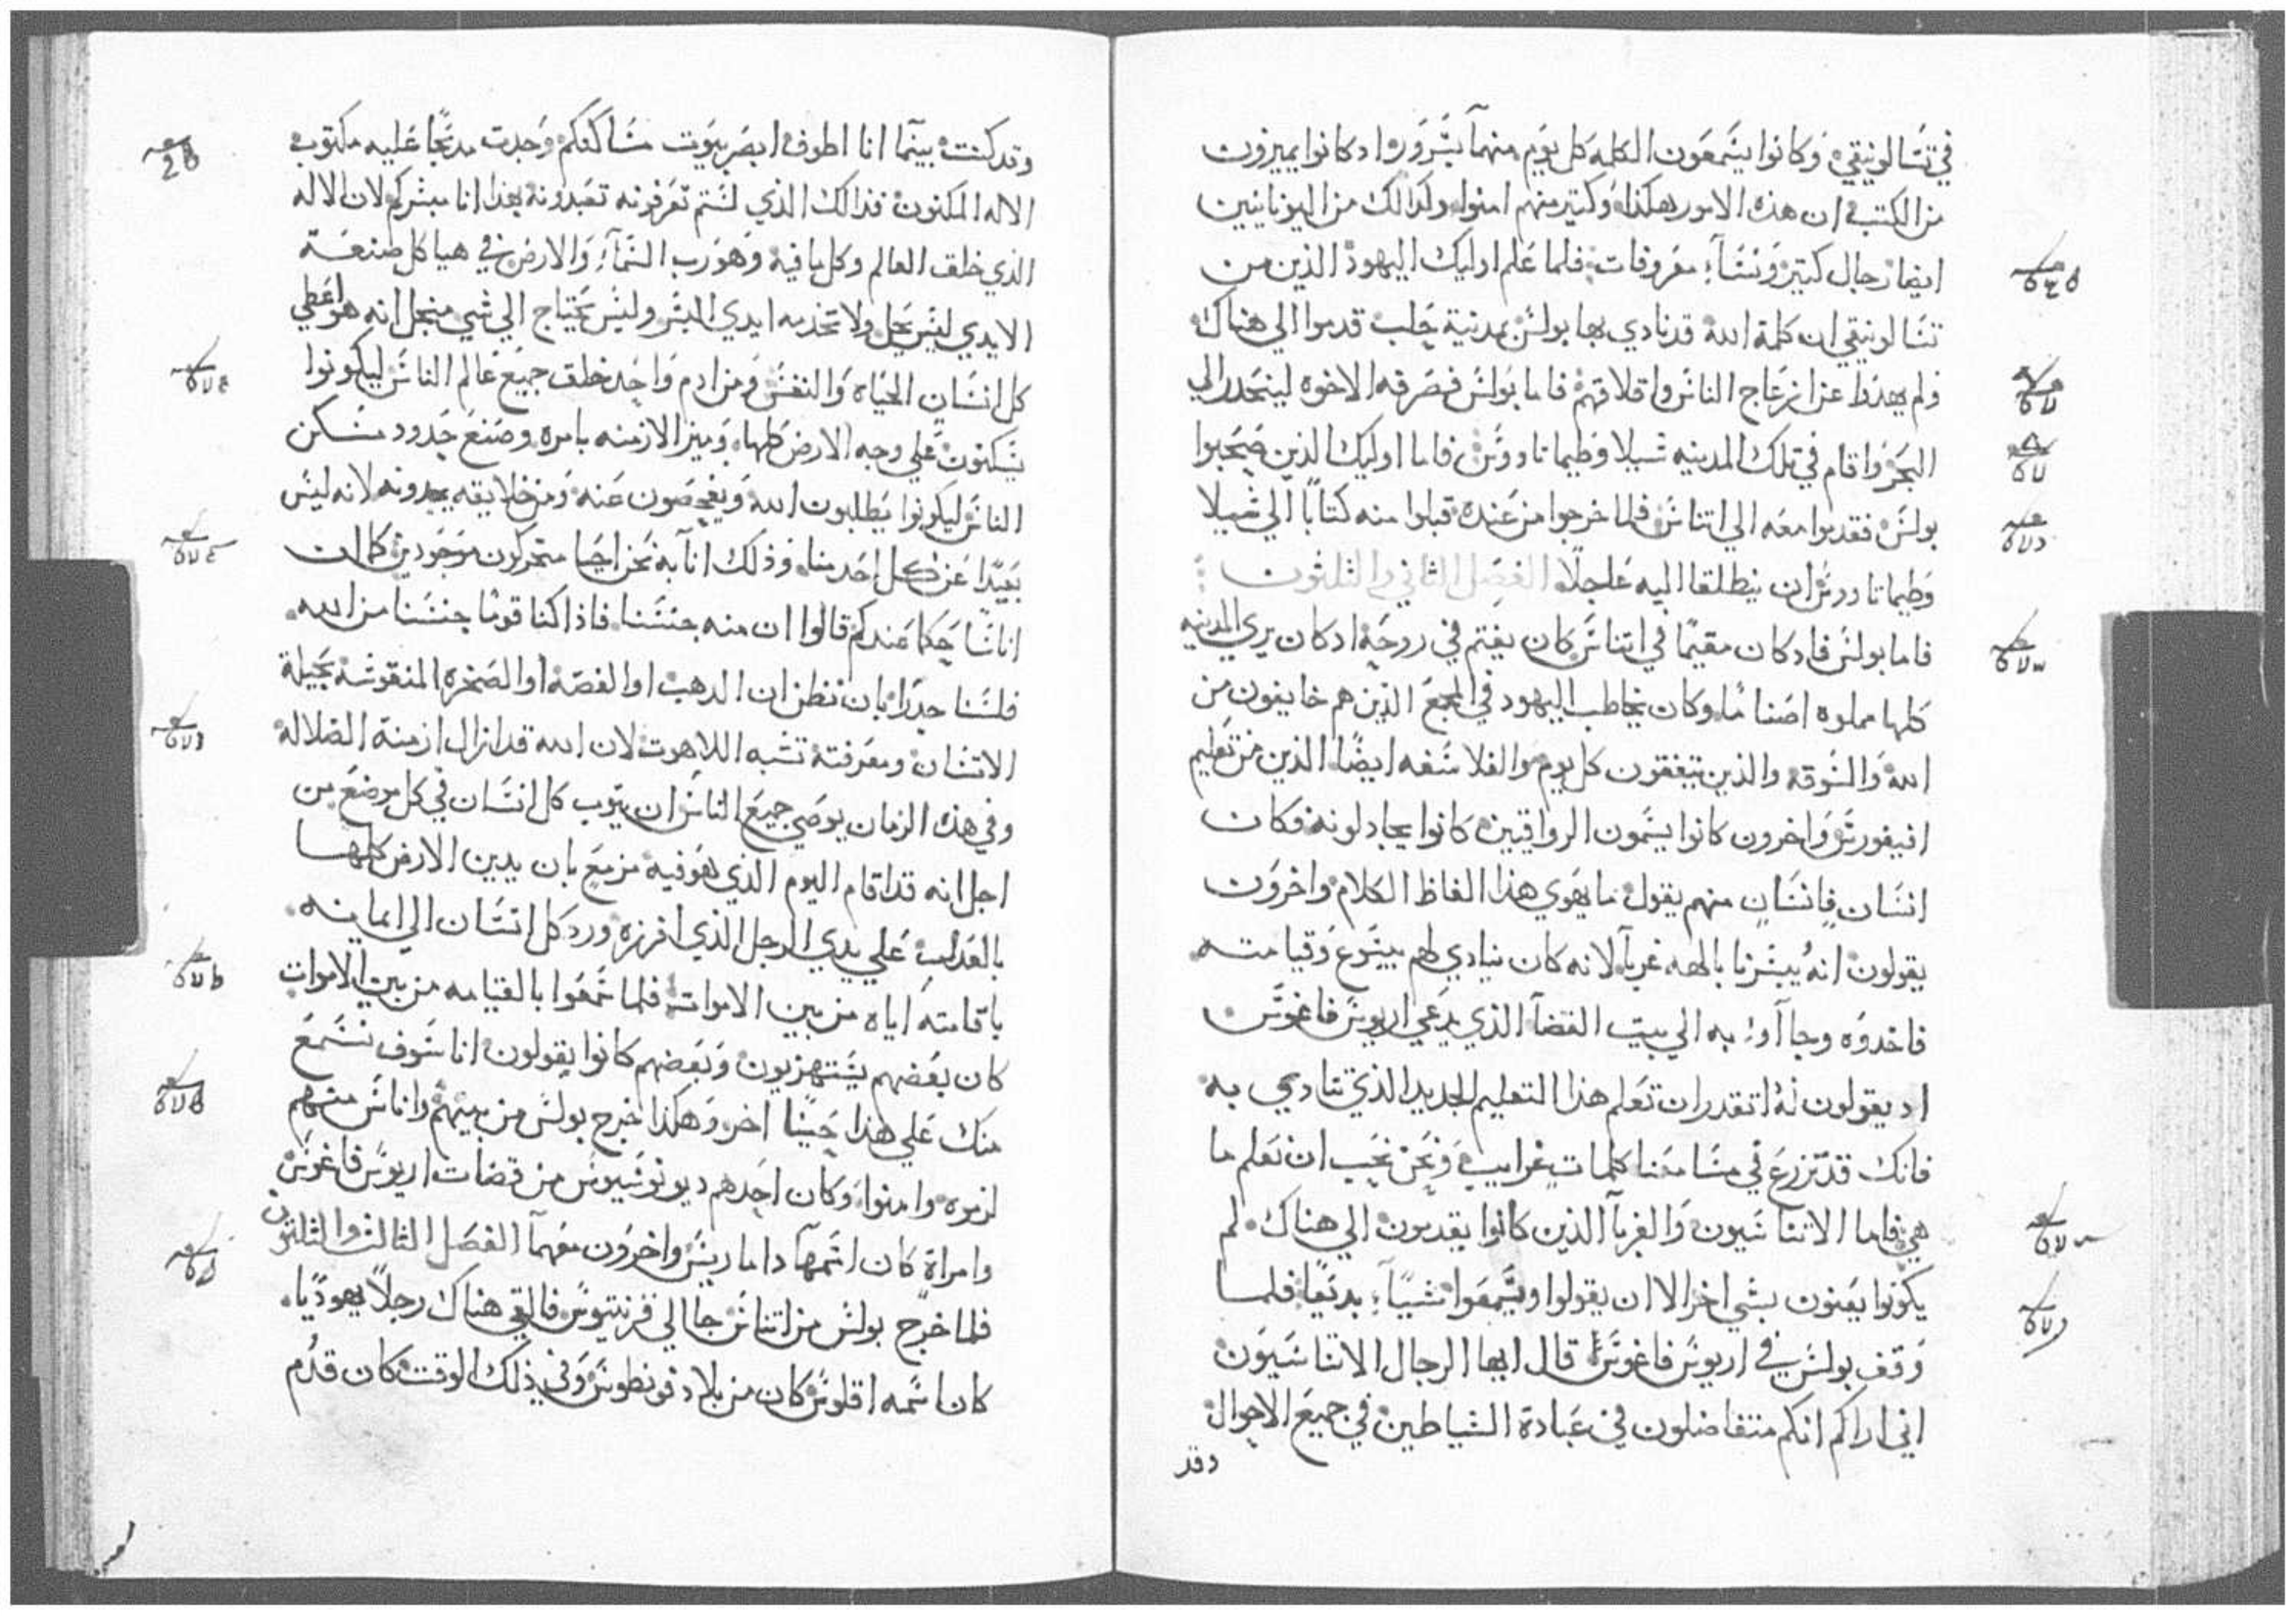 في تسالونيقي وكانوا يسمعون الكلمه كل يوم منهما بسرور واد كانوا يميزون
من الكتب ان هذه الامور هكذا وكتير منهم امنوا وكدالك من اليونانيين
ايضا رجال كتير ونساء معروفات فلما علم اوليك اليهود الذين من
تسالونيقي ان كلمة الله قد نادي بها بولس بمدنية حلب قدموا الي هناك
ولم يهدوا عن ازعاج الناس واقلاقهم فاما بولس فصرفه الاخوه لينحدر الي
البحر واقام في تلك المدينه شيلا وطيماتاووس فاما اوليك الذين صحبوا
بولس فقدموا معه الي اتناس فلما خرجوا من عنده قبلوا منه كتابا الي شيلا
وطيماتاووس ان ينطلقا اليه عاجلا الفصل الثاني والثلثون
فاما بولس فاد كان مقيما في اتناس كان يغتم في روحه اد كان يري المدينه
كلها مملوه اصناما وكان يخاطب اليهود في المجمع الذين هم خايفون من
الله والسوقه والذين يتفقون كل يوم والفلاسفه ايضا الذين من تعليم
افيغورس واخرون كانوا يسمون الرواقيين كانوا يجادلونه فكان
انسان فانسان منهم يقول ما يهوي هذا الفاظ الكلام واخرون
يقولون انه يبشرنا بالهه غربا لانه كان ينادي لهم بيسوع وقيامته
فاخدوه وجاآوا به الي بيت القضا الذي يدعي اريوس فاغوس
اد يقولون له اتقدر ان تعلم هذا التعليم الجديد الذي تنادي به
فانك قد تزرع في مسامعنا كلمات غرايب ونحن نحب ان نعلم ما
هي فاما الاتناسيون والغربآ الذين كانوا يقدمون الي هناك لم
يكونوا يعنون بشي اخر الا ان يقولوا ويسمعوا شيآ بديعا فلما
وقف بولس في اريوس فاغوس قال ايها الرجال الاتناسيون
اني اراكم انكم متفاضلون في عبادة الشياطين في جميع الاحوال
وقد
وقد كنت بينما انا اطوف ابصر بيوت مساكنكم وجدت مدبحا عليه مكتوب
الاله المكنون فذالك الذي لستم تعرفونه تعبدونه بهذا انا مبشركم لان الاله
الذي خلق العالم وكل ما فيه وهو رب السمآء والارض في هياكل صنعة
الايدي ليس يحل ولا تخدمه ايدي البشر وليس يحتاج الي شي منجل انه هو اعطي
كل انسان الحياه والنفس ومن ادم واحد خلق جميع عالم الناس ليكونوا
يسكنون علي وجه الارض كلها وميز الازمنه بامره وصنع حدود مسكن
الناس ليكونوا يطلبون الله ويفحصون عنه ومن خلايقه يجدونه لانه ليس
بعيدا عن كل احد منا وذلك انآ به نحن احيا متحركون موجودين كما ان
اناسا حكما عندكم قالوا ان منه جنسنا فاذا كنا قوما جنسنا من الله
فلسنا جدرا بان نظن ان الدهب او الفضه او الصخره المنقوشه بحيلة
الانسان ومعرفته تشبه اللاهوت لان الله قد ازال ازمنة الضلاله
وفي هذه الزمان يوصي جميع الناس ان يتوب كل انسان في كل موضع من
اجل انه قد اقام اليوم الذي هو فيه مزمع بان يدين الارض كلها
بالعدل علي يدي الرجل الذي افرزه ورد كل انسان الي ايمانه
باقامته اياه من بين الاموات فلما سمعوا بالقيامه من بين الاموات
كان بعضهم يستهزيون وبعضهم كانوا يقولون انا سوف نسمع
منك علي هذا حينا اخر وهكذا خرج بولس من بينهم واناس منهم
لزموه وامنوا وكان احدهم ديونوسيوس من قضات اريوس فاغوس
وامراة كان اسمها داماريس واخرون معهما الفصل الثالث والثلثون
فلما خرج بولس من اتناس جا الي قرنتيوس فالقي هناك رجلا يهوديا
كان اسمه اقلوس كان من بلاد فونطوس وفي ذلك الوقت كان قدم